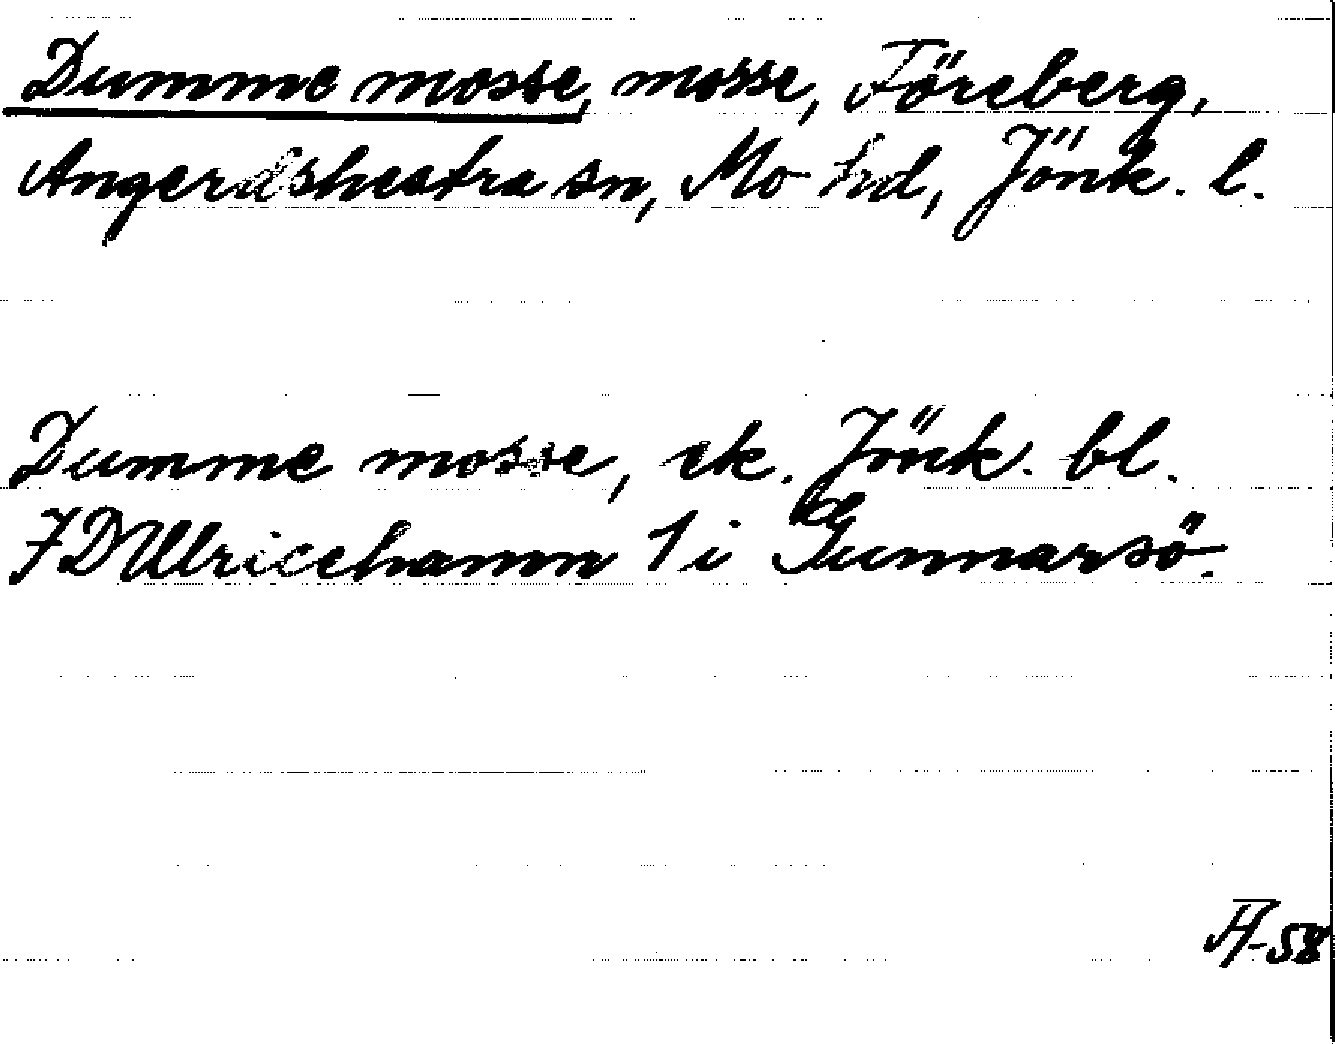 Dumme mosse, mosse, Föreberg,
Angerdshestra sn, Mo hd, Jönk. l.
Dumme mosse, ek. Jönk. bl.
7D Ulricehamn 1 i Gunnarsö.